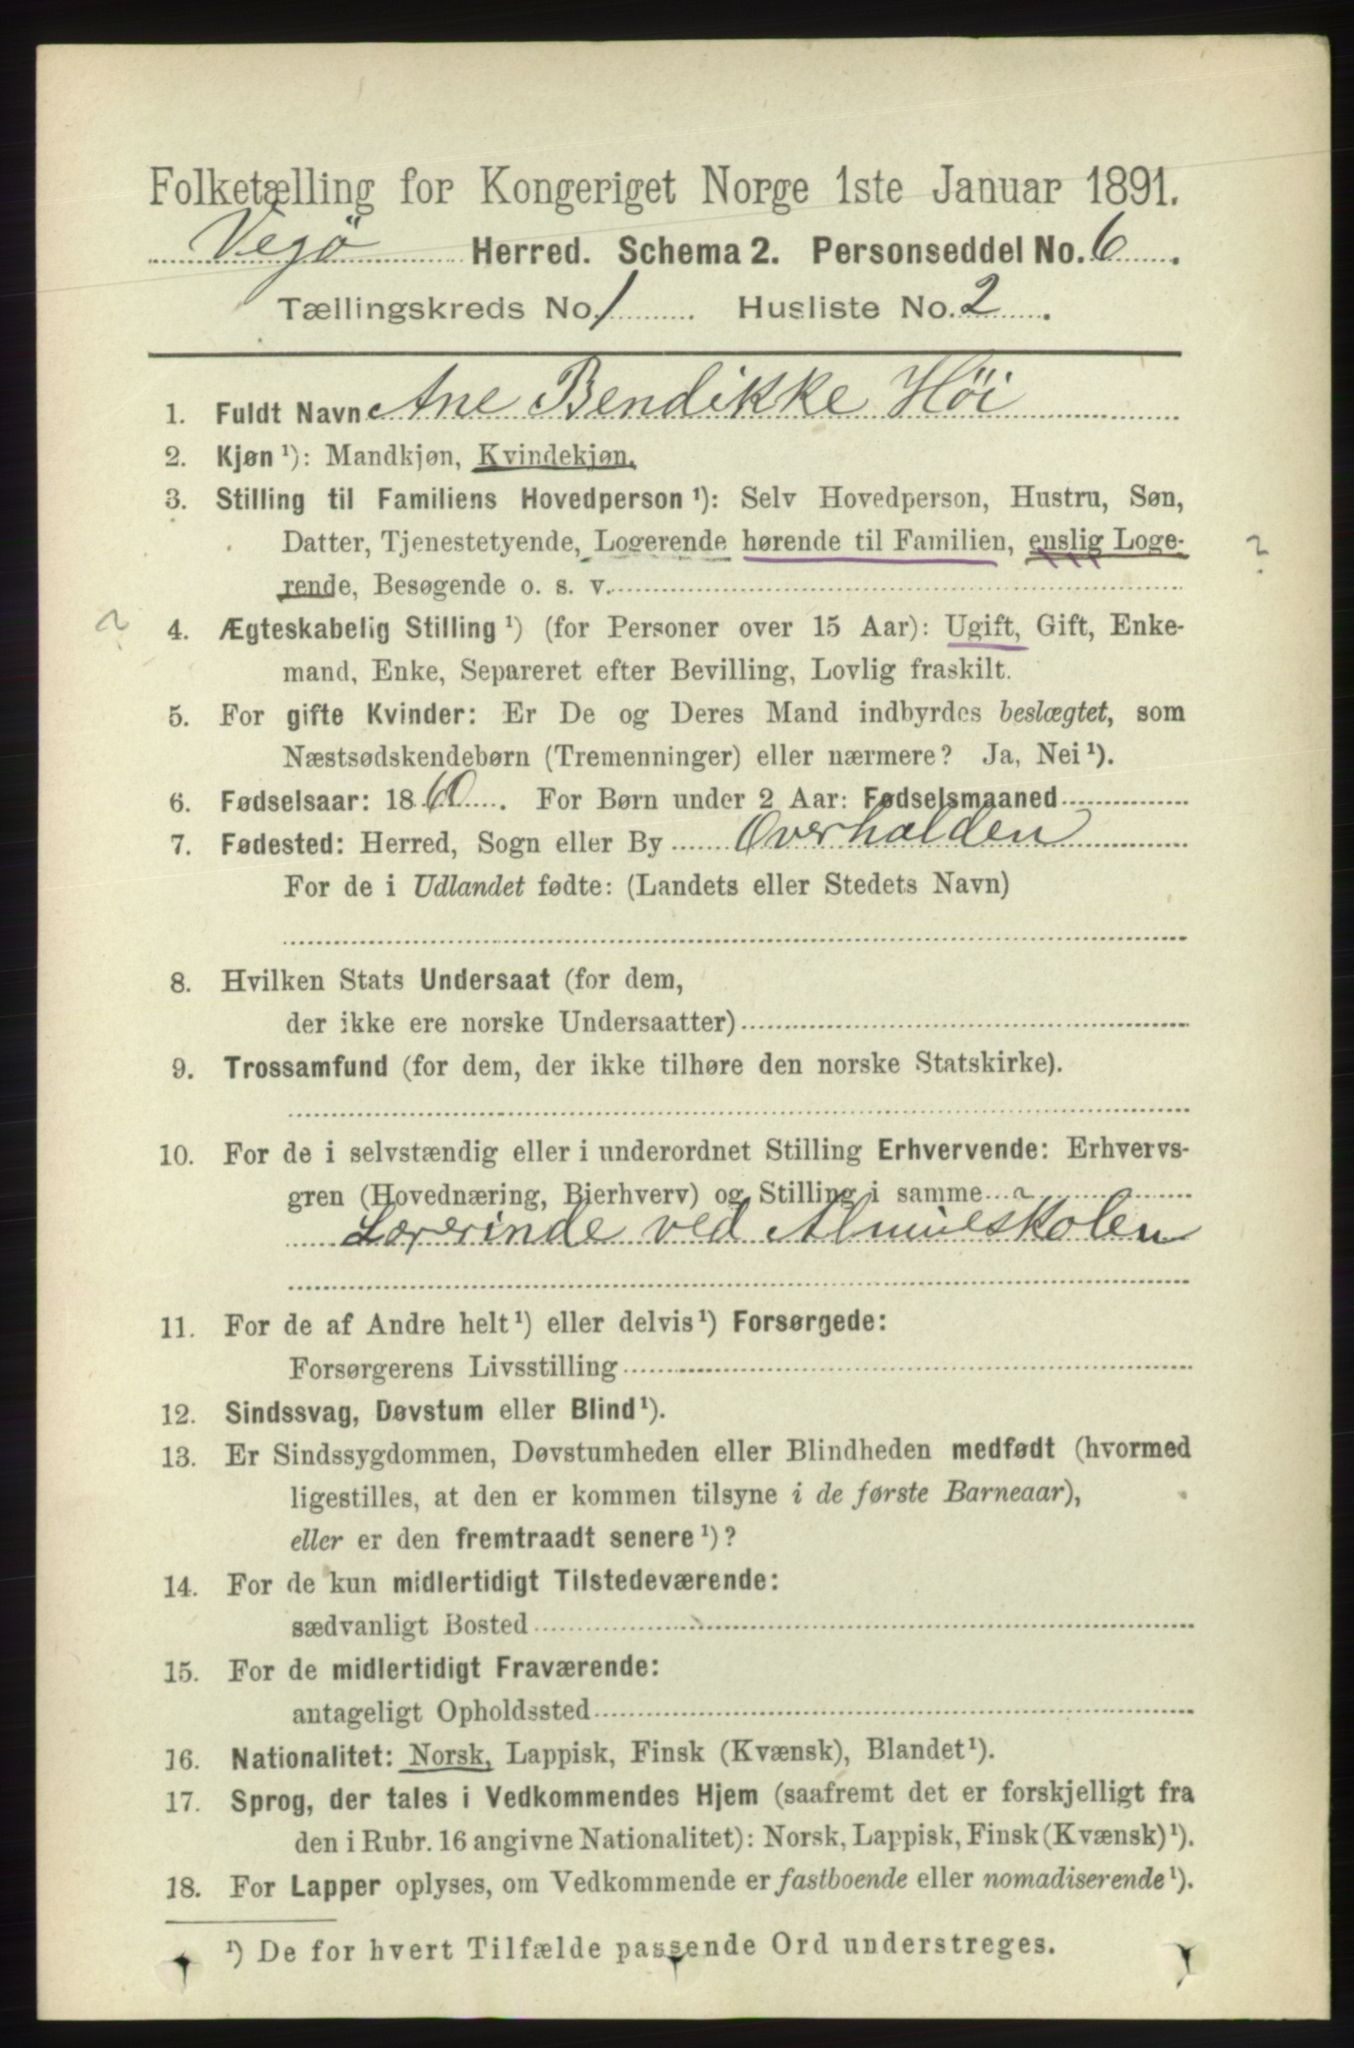 Folketælling for Kongeriget Norge 1ste Januar 1891.
Vegø Herred. Schema 2. Personseddel No. 6.
Tællingskreds No. 1. Husliste No. 2.
1. Fuldt Navn Ane Bendikke Höi
2. Kjøn ¹): Mandkjøn, Kvindekjøn.
3. Stilling til Familiens Hovedperson ¹): Selv Hovedperson, Hustru, Søn,
Datter, Tjenestetyende, Logerende hørende til Familien, enslig Loge-
?
rende, Besøgende o. s. v.
?
4. Ægteskabelig Stilling ¹) (for Personer over 15 Aar): Ugift, Gift, Enke-
mand, Enke, Separeret efter Bevilling, Lovlig fraskilt.
5. For gifte Kvinder: Er De og Deres Mand indbyrdes beslægtet, som
Næstsødskendebørn (Tremenninger) eller nærmere? Ja, Nei ¹).
6. Fødselsaar: 1860. For Børn under 2 Aar: Fødselsmaaned
7. Fødested: Herred, Sogn eller By Overhalden
For de i Udlandet fødte: (Landets eller Stedets Navn)
8. Hvilken Stats Undersaat (for dem,
der ikke ere norske Undersaatter)
9. Trossamfund (for dem, der ikke tilhøre den norske Statskirke).
10. For de i selvstændig eller i underordnet Stilling Erhvervende: Erhvervs-
gren (Hovednæring, Bierhverv) og Stilling i samme
Lærerinde ved Almueskolen
11. For de af Andre helt ¹) eller delvis ¹) Forsørgede:
Forsørgerens Livsstilling
12. Sindssvag, Døvstum eller Blind ¹).
13. Er Sindssygdommen, Døvstumheden eller Blindheden medfødt (hvormed
ligestilles, at den er kommen tilsyne i de første Barneaar),
eller er den fremtraadt senere ¹)?
14. For de kun midlertidigt Tilstedeværende:
sædvanligt Bosted
15. For de midlertidigt Fraværende:
antageligt Opholdssted
16. Nationalitet: Norsk, Lappisk, Finsk (Kvænsk), Blandet ¹).
17. Sprog, der tales i Vedkommendes Hjem (saafremt det er forskjelligt fra
den i Rubr. 16 angivne Nationalitet): Norsk, Lappisk, Finsk (Kvænsk) ¹).
18. For Lapper oplyses, om Vedkommende er fastboende eller nomadiserende ¹).
¹) De for hvert Tilfælde passende Ord understreges.